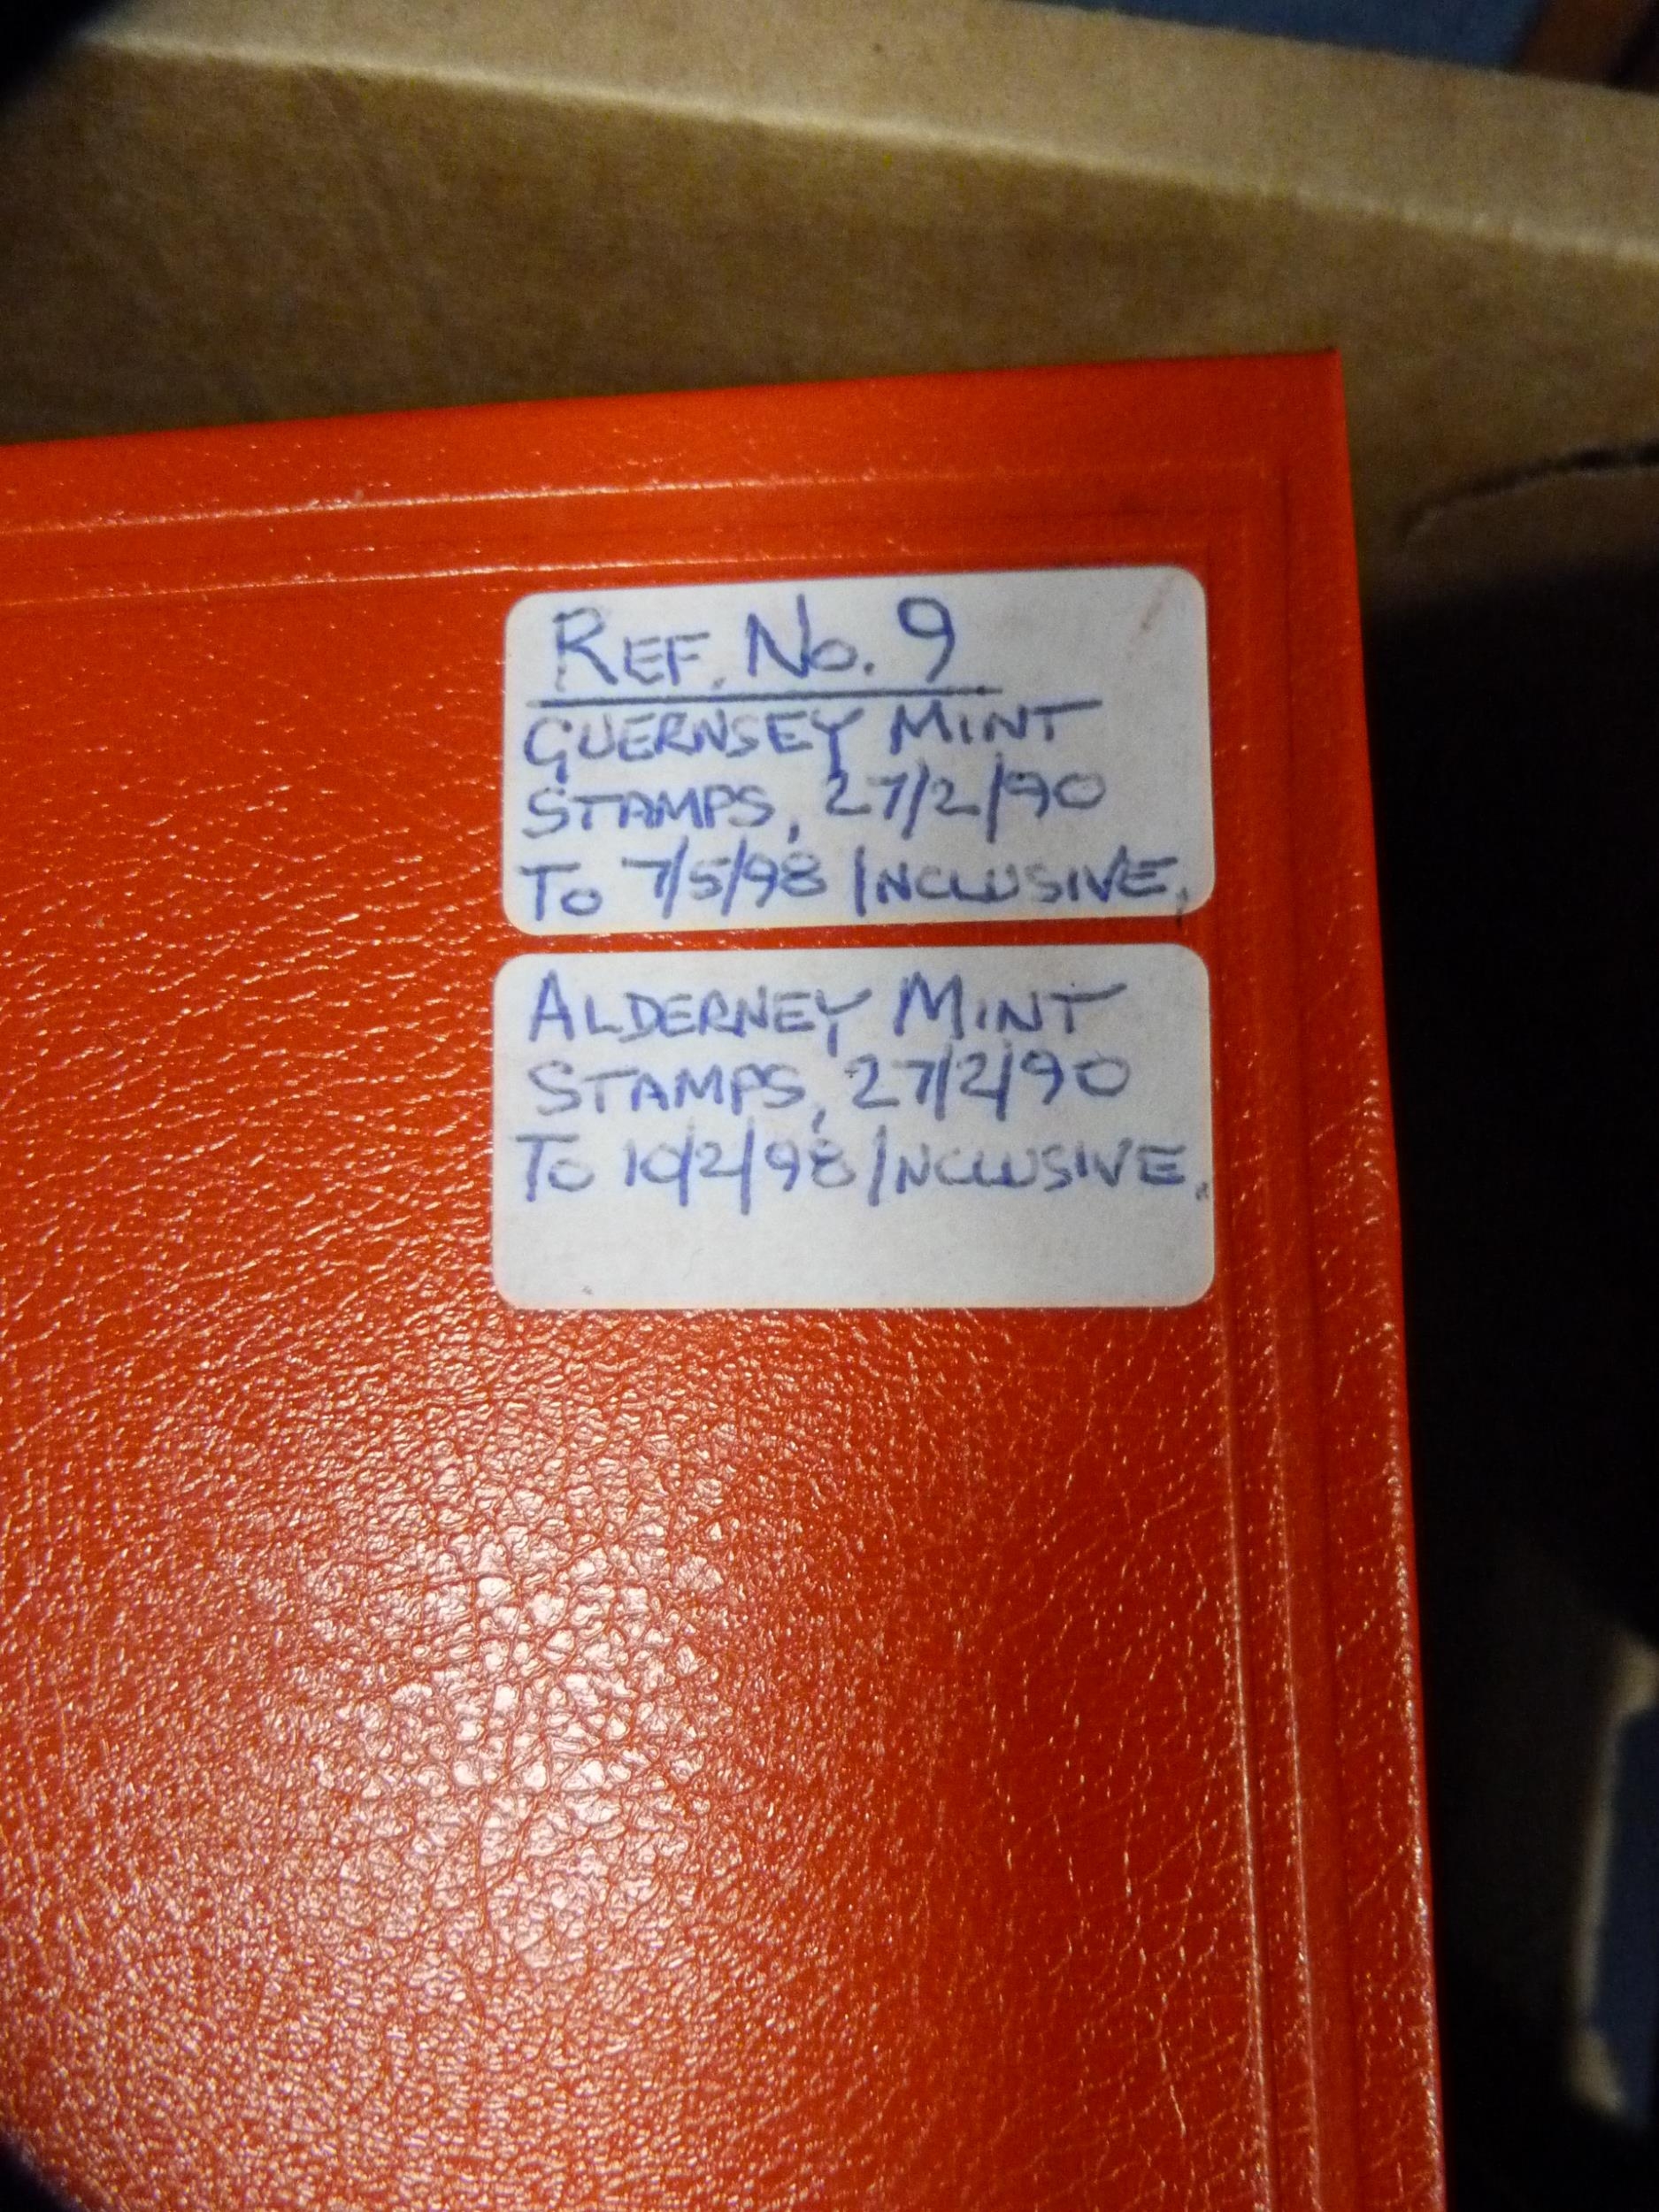 REF. No. 9
GUERNSEY MINT
STAMPS, 27/2/90
To 7/5/98 INCLUSIVE.
ALDERNEY MINT
STAMPS, 27/2/90
To 10/2/98 INCLUSIVE.